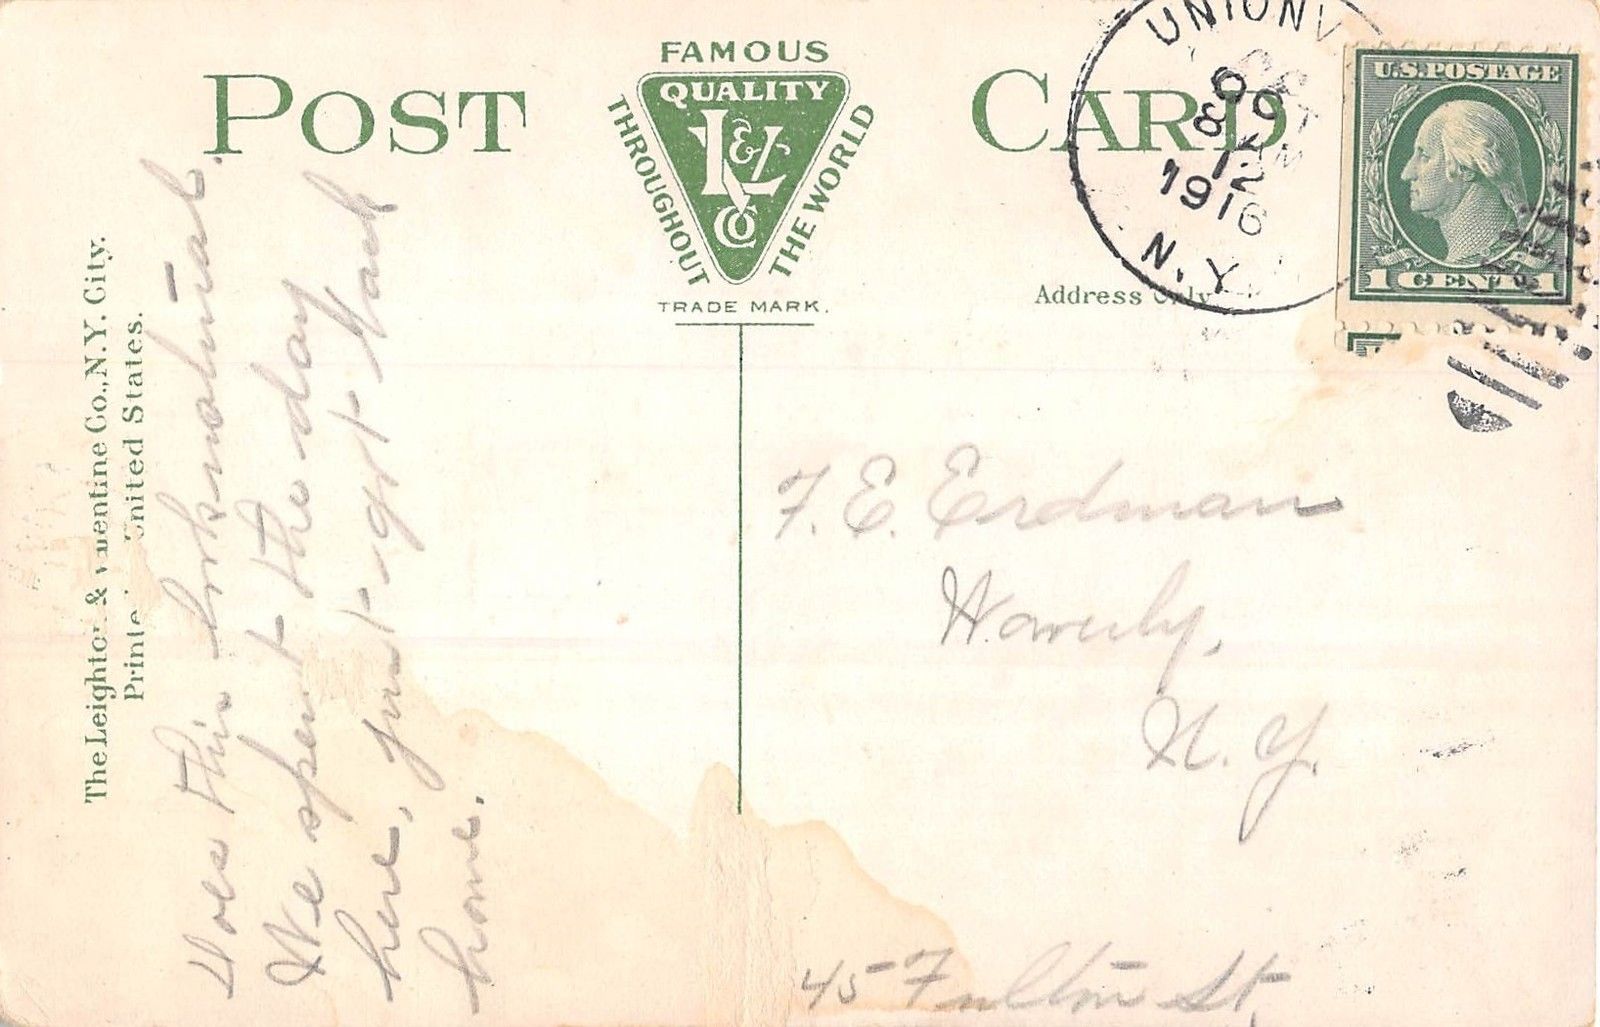 POST CARD
FAMOUS
QUALITY
THROUGHOUT
THE WORLD
L&V
Co
TRADE MARK.
UNIONV
OCT
9
8 AM
12
1916
N.Y.
U.S. POSTAGE
1 CENT 1
Address Only
The Leighton & Valentine Co., N.Y. City.
Printed United States.
Does this look natural.
We spent the day
here, just got back
home.
F. E. Erdman
Waverly,
N. Y.
45 Fulton St.